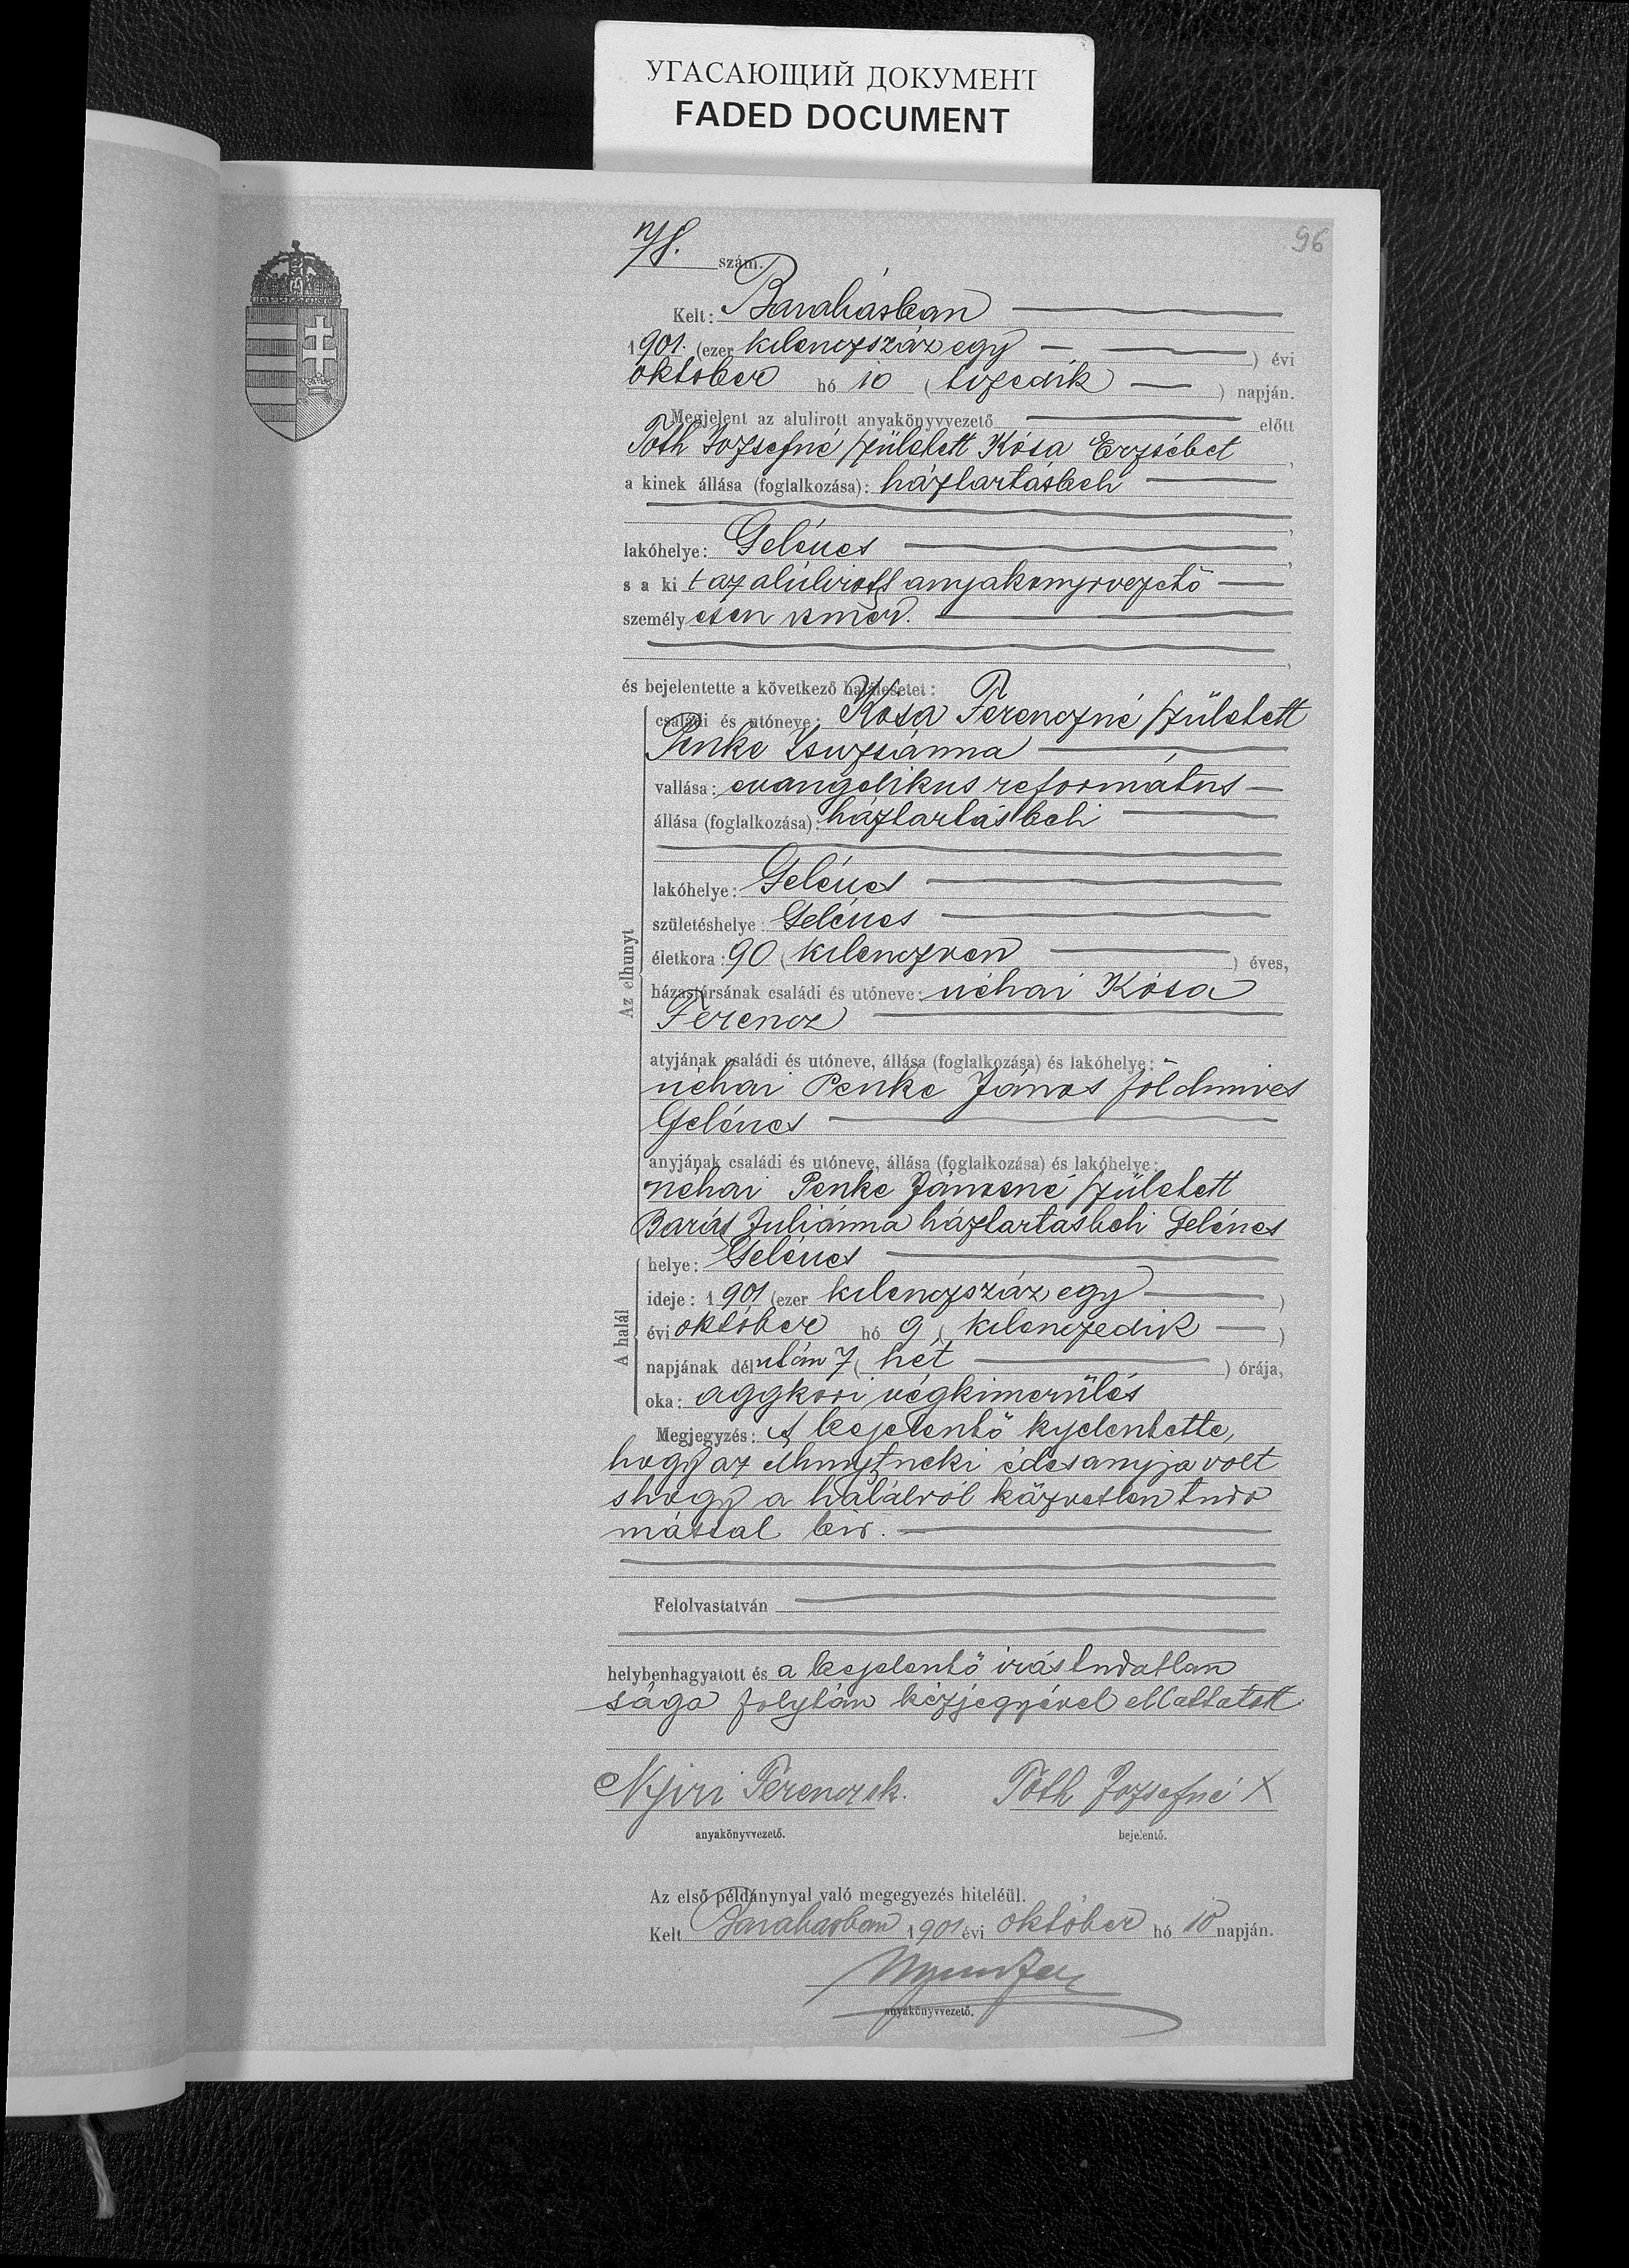 УГАСАЮЩИЙ ДОКУМЕНТ
FADED DOCUMENT
96
78. szám.
Kelt: Barabásban
1901. (ezer kilenczszáz egy) évi
október hó 10 (tizedik) napján.
Megjelent az alulirott anyakönyvvezető előtt
Tóth Józsefné született Kósa Erzsébet,
a kinek állása (foglalkozása): háztartásbeli
,
lakóhelye: Gelénes,
s a kit az alúlirott anyakönyvvezető
személyesen ismer.
,
és bejelentette a következő halálesetet:
Az elhunyt
családi és utóneve: Kósa Ferenczné született
Penke Zsuzsánna,
vallása: evangelikus református
állása (foglalkozása): háztartásbeli
lakóhelye: Gelénes
születéshelye: Gelénes
életkora: 90 (kilenczven) éves,
házastársának családi és utóneve: néhai Kósa
Ferencz
atyjának családi és utóneve, állása (foglalkozása) és lakóhelye:
néhai Penke János földmives
Gelénes
anyjának családi és utóneve, állása (foglalkozása) és lakóhelye:
néhai Penke Jánosné született
Juliánna háztartásbeli Gelénes
A halál
helye: Gelénes
ideje: 1901 (ezer kilenczszáz egy)
évi október hó 9 (kilenczedik)
napjának délután 7 (hét) órája,
oka: aggkori végkimerülés
Megjegyzés: A bejelentő kijelentette,
hogy az elhunyt neki édesanyja volt
s hogy a halálról közvetlen tudo
mással bir.
Felolvastatván
helybenhagyatott és a bejelentő irástudatlan
sága folytán kézjegyével elláttatott
Nyiri Ferencz sk. Tóth Józsefné X
anyakönyvvezető. bejelentő.
Az első példánynyal való megegyezés hiteléül.
Kelt Barabásban 1901 évi október hó 10 napján.
anyakönyvvezető.